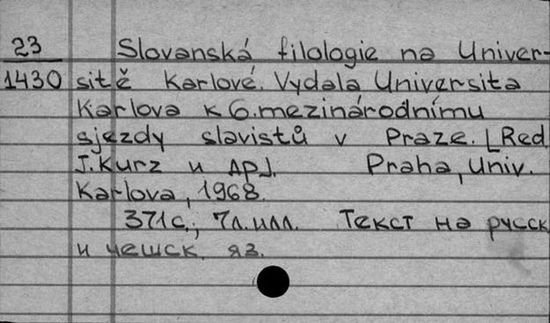 23 Slovanská filologie na Univer-
1430 sitě Karlové. Vydala Universita
Karlova k 6. mezinárodnímu
sjezdy slavistů v Praze. [Red.
J. Kurz и др]. Praha, Univ.
Karlova, 1968.
371 с.; 7 л. илл. Текст на русск
и чешск. яз.